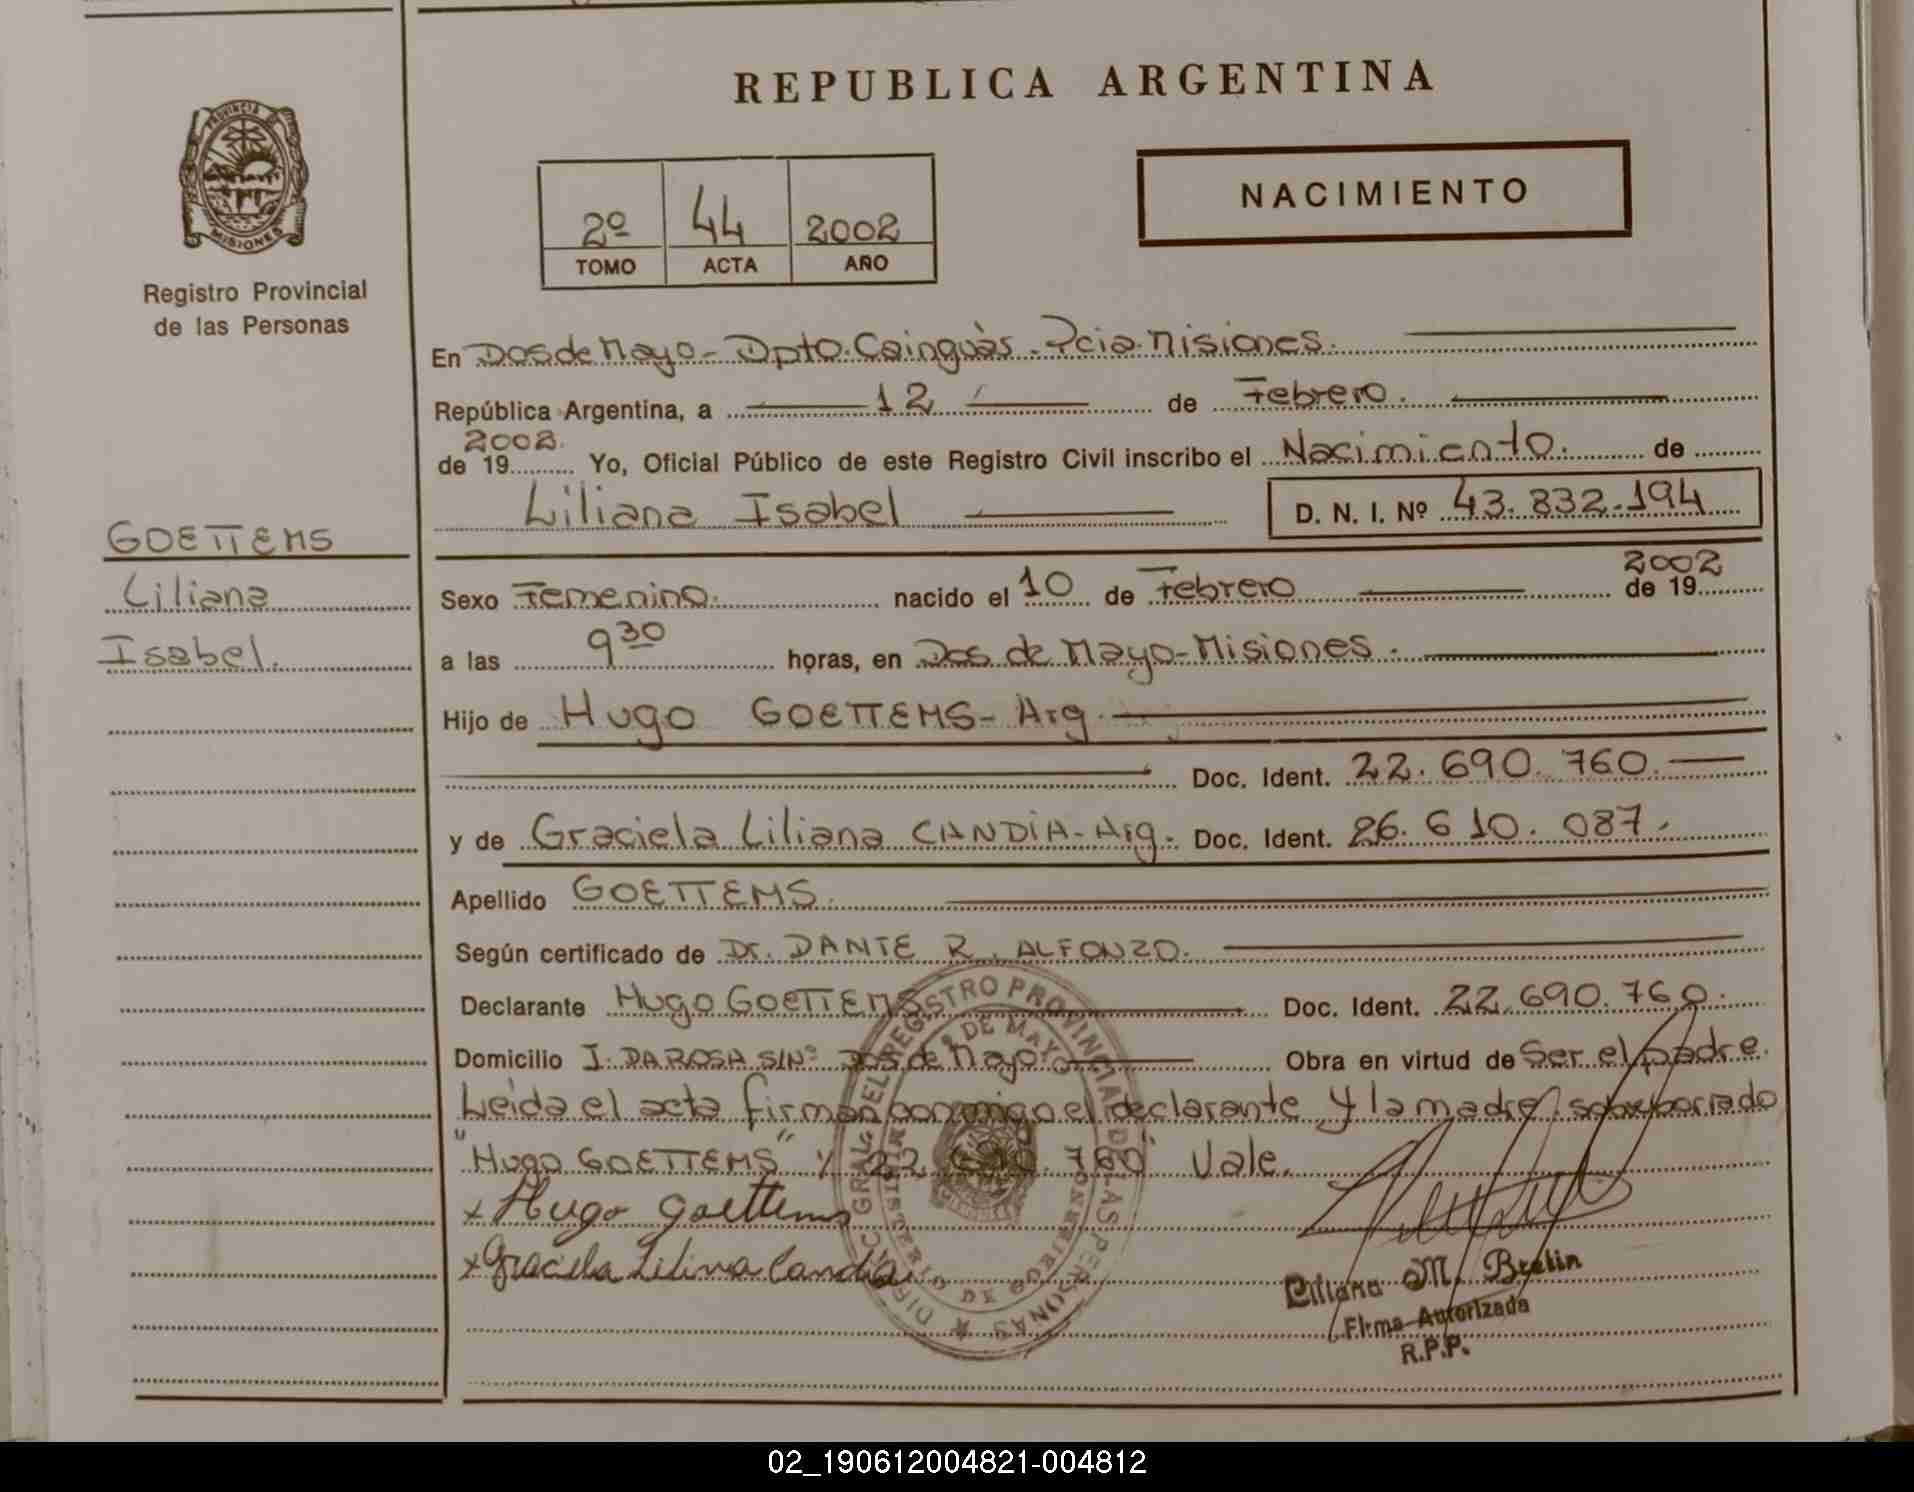 REPUBLICA ARGENTINA
PROVINCIA DE
MISIONES
Registro Provincial
de las Personas
NACIMIENTO
2º 44 2002
TOMO ACTA AÑO
En Dos de Mayo - Dpto. Cainguàs - Pcia. Misiones.
República Argentina, a 12 de Febrero.
2002.
de 19 Yo, Oficial Público de este Registro Civil inscribo el Nacimiento. de
Liliana Isabel D. N. I. Nº 43.832.194
GOETTEMS
Liliana
Isabel.
2002
Sexo Femenino. nacido el 10 de Febrero de 19
a las 9 30 horas, en Dos de Mayo - Misiones.
Hijo de Hugo GOETTEMS - Arg.
Doc. Ident. 22.690.760.
y de Graciela Liliana CANDIA - Arg. Doc. Ident. 26.610.087.
Apellido GOETTEMS.
Según certificado de Dr. DANTE R. ALFONZO.
Declarante Hugo GOETTEMS Doc. Ident. 22.690.760.
Domicilio I. DA ROSA S/Nº Dos de Mayo Obra en virtud de Ser el padre.
Leida el acta firman conmigo el declarante y la madre. sobreborrado
"Hugo GOETTEMS" y 22.690.760" Vale.
x Hugo Goettems
x Graciela Liliana Candia
DIREC. GRAL. DEL REGISTRO PROVINCIAL DE LAS PERSONAS
DE MAYO
MINISTERIO DE GOBIERNO
Liliana M. Brelin
Firma Autorizada
R.P.P.
02_190612004821-004812